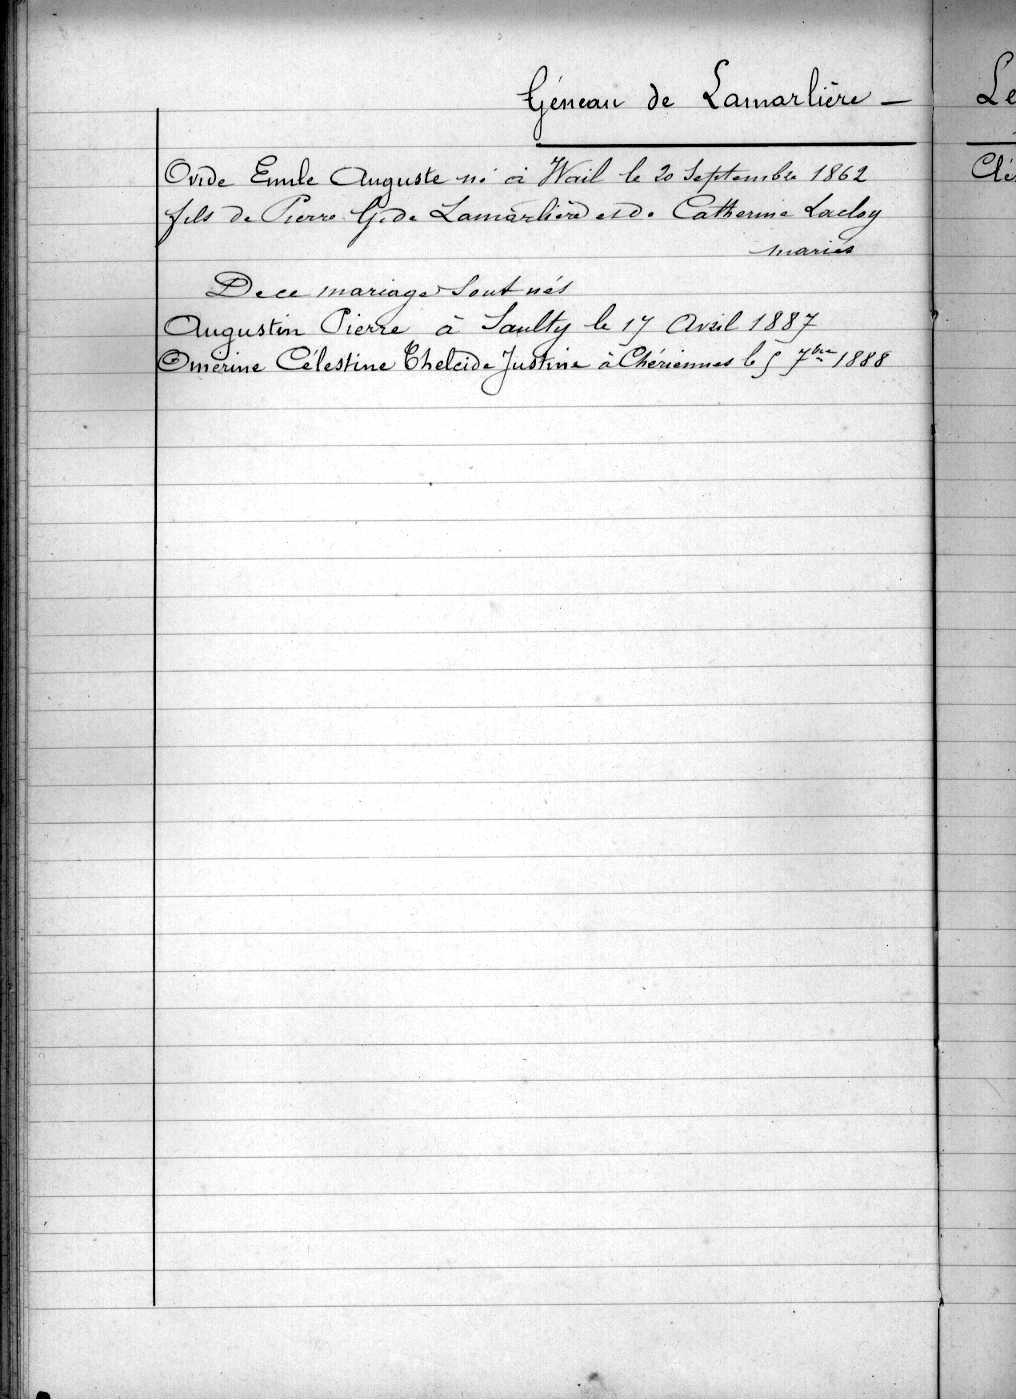 Géneau de Lamarlière —
Ovide Emile Auguste né à Wail le 20 Septembre 1862
fils de Pierre G. de Lamarlière et de Catherine Lacloy
mariés
De ce mariage sont nés
Augustin Pierre à Saulty le 17 Avril 1887
Omérine Célestine Thelcide Justine à Chériennes le 5 7bre 1888
Le
Clé